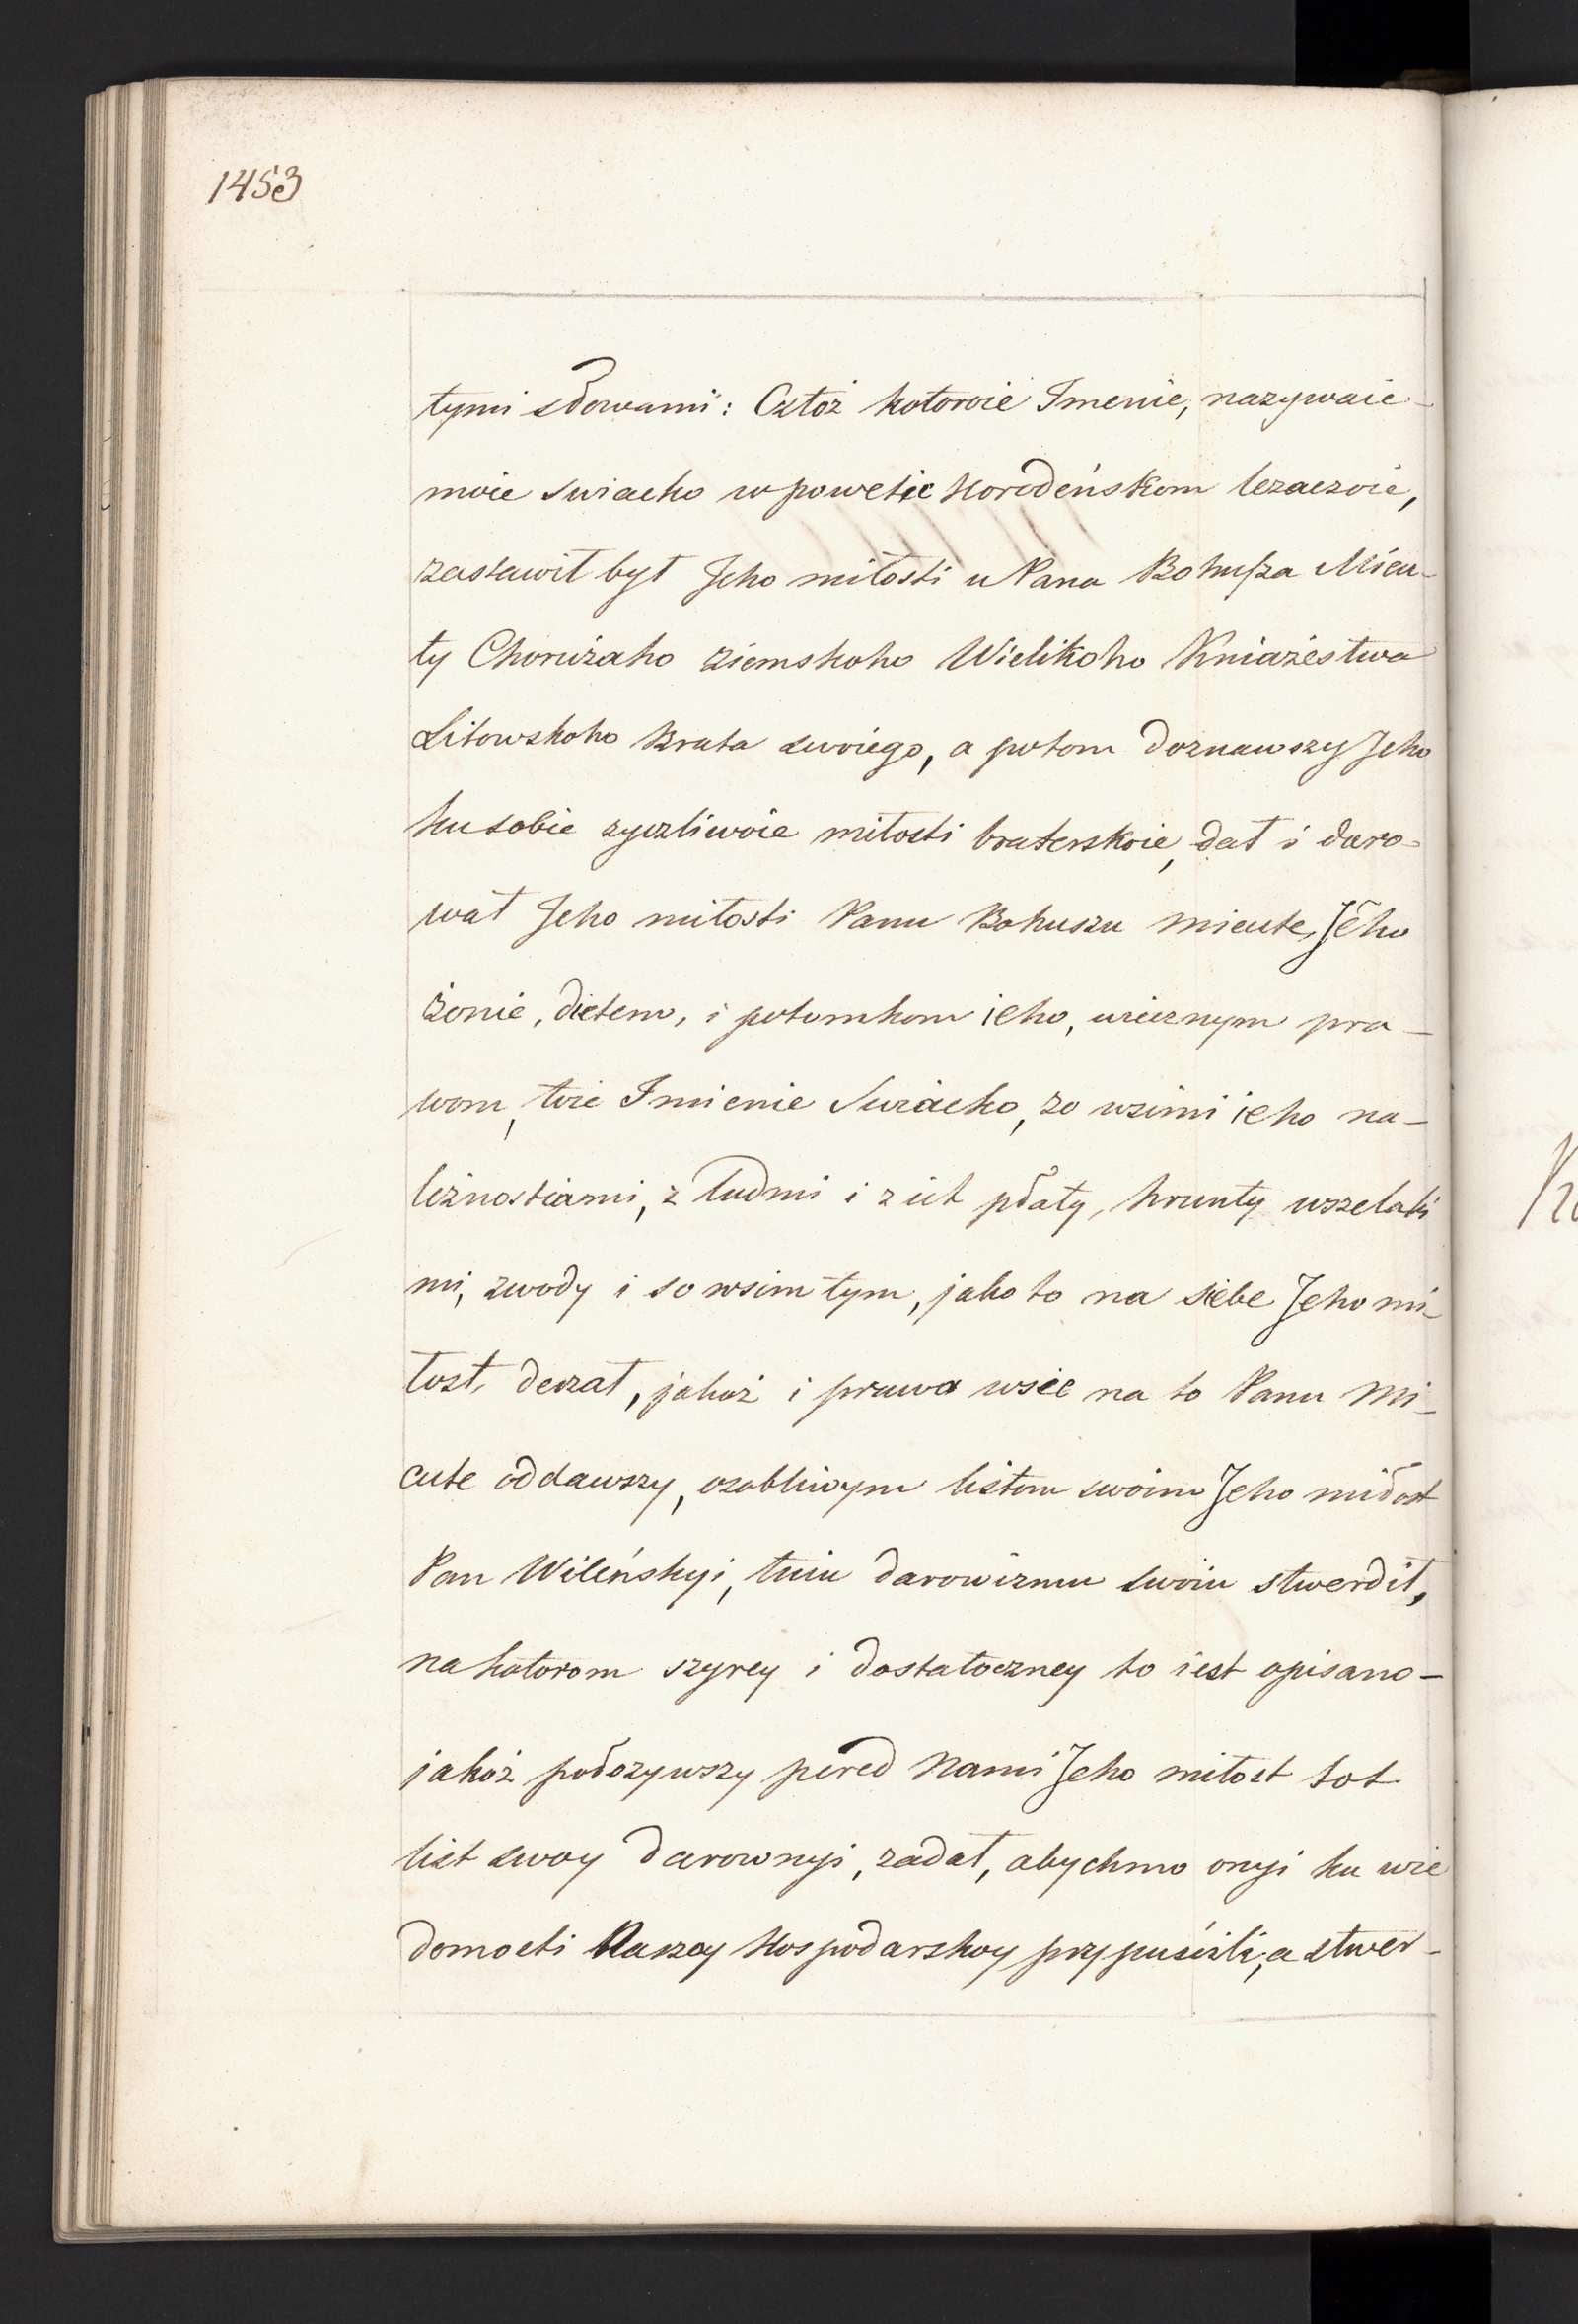 1453
tymi słowami: Cztoż kotoroie Imenie, nazywaie-
moie Swiacko w powetie Horodeńskom lezaczoie,
zastawił był Jeho miłosti u Pana Bohusza Micu-
ty Choružaho ziemskoho Wielikoho Kniażestwa
Litowskoho Brata swoiego, a potom doznawszy Jeho
ku sobie zyczliwoie miłosti braterskoie, dał i daro-
wał Jeho miłosti Panu Bohuszu Micute, Jeho
żonie, dietem, i potomkom ieho, wiecznym pra-
wom, toie Imienie Swiacko, zo wsimi ieho na-
liżnostiami, z ludmi i z ich płaty, hrunty wszelaki
mi, zwody i so wsim tym, jako to na siebe Jeho mi-
łost, derzał, jakoż i prawa wsie na to Panu Mi-
cute oddawszy, osobliwym listom swoim Jeho miłost
Pan Wileńskyi, tuiu darowiznu swoiu stwerdił,
na kotorom szyrey i dostatoczney to iest opisano-
jakoż położywszy pered Nami Jeho miłost tot
list swoy darownyi, zadał, abychmo onyi ku wie
domosti Naszoy Hospodarskoy prypuśtili, a stwer-